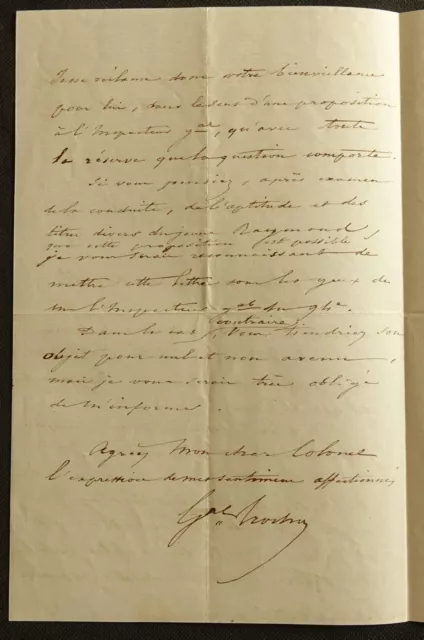 Je ne réclame donc votre bienveillance
pour lui, dans le sens d'une proposition
à l'Inspecteur gal, qu'avec toute
la réserve que la question comporte.
Si vous pensiez, après examen
de la conduite, de l'aptitude et des
titres divers du jeune Raymond,
que cette proposition est possible,
je vous serais reconnaissant de
mettre cette lettre sous les yeux de
M. l'Inspecteur gal du
Dans le cas contraire, vous tiendriez son
objet pour nul et non avenu,
mais je vous serais très obligé
de m'informer.
Agréez Mon cher Colonel
l'expression de mes sentiments affectionnés
Gal Trochu